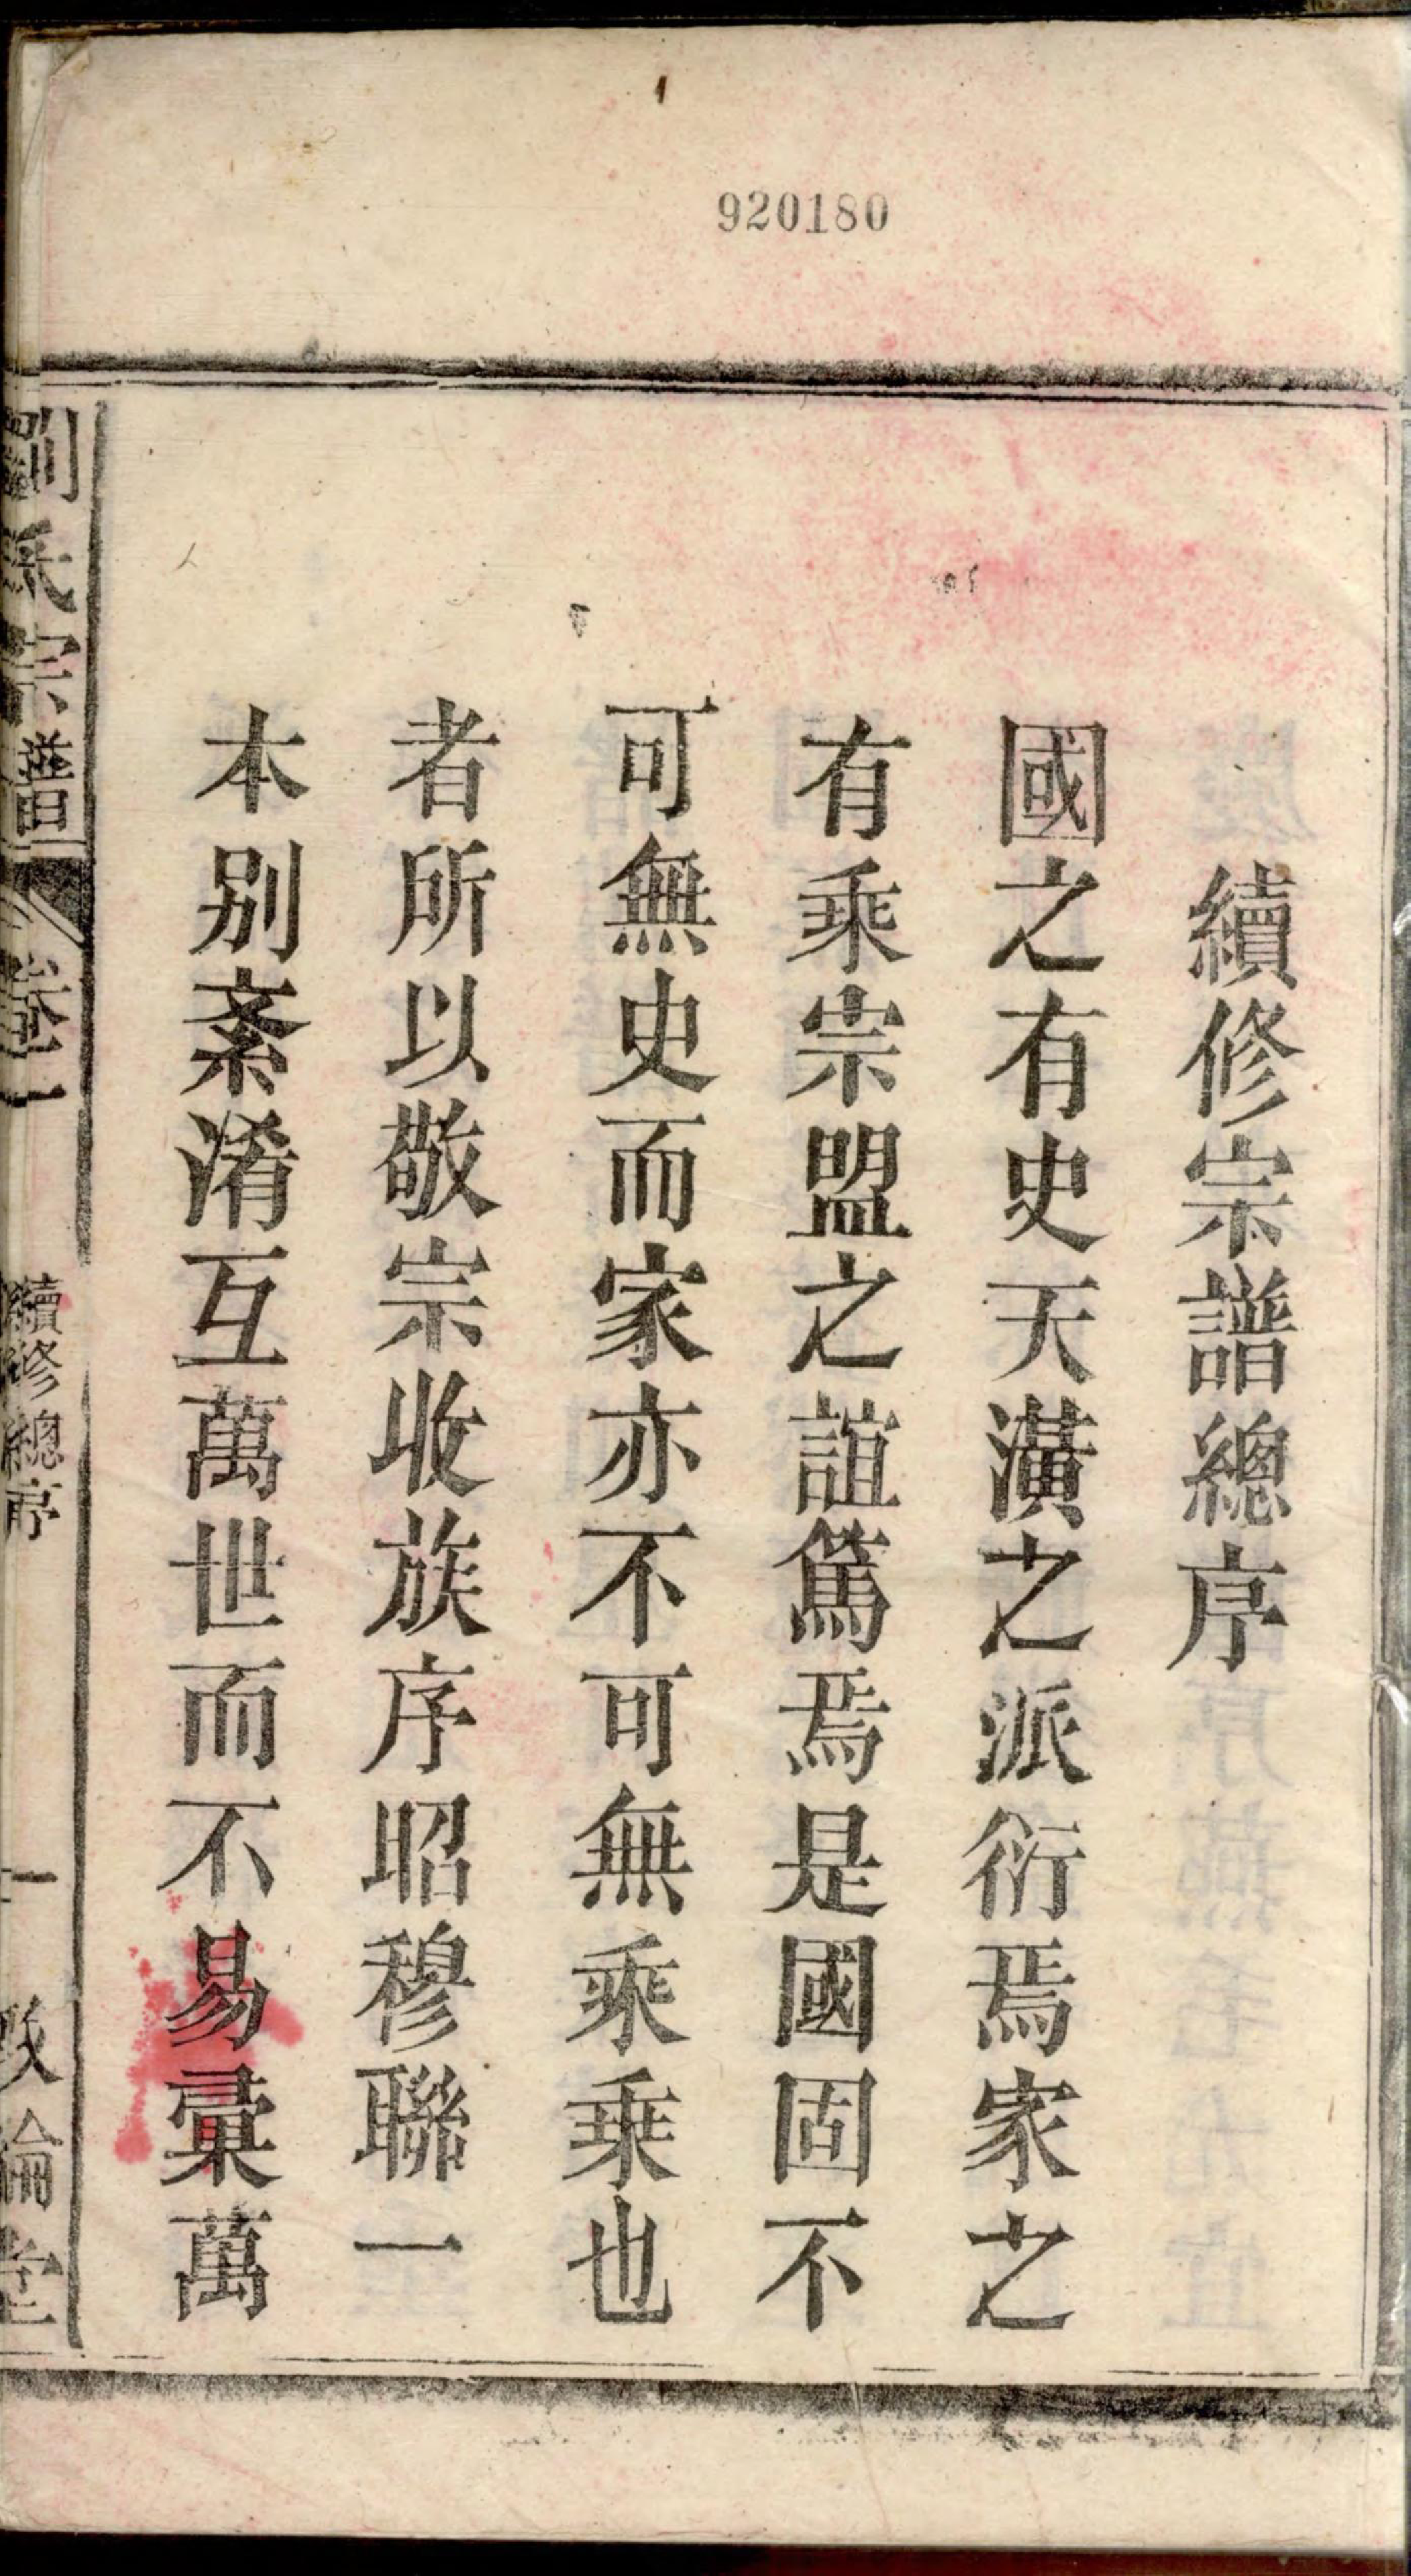 920180
續修宗譜總序
國之有史天潢之派衍焉家之
有乘宗盟之誼篤焉是國固不
可無史而家亦不可無乘乘也
者所以敬宗收族序昭穆聯一
本別紊淆互萬世而不易彙萬
劉氏宗譜 卷一 續修總序 一 敦倫堂